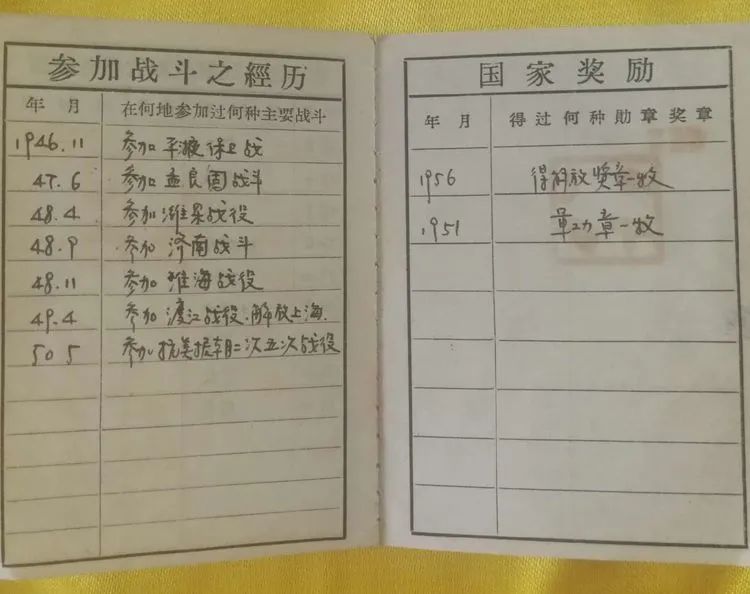 参加战斗之經历
年 月 在何地参加过何种主要战斗
1946.11 参加平渡保卫战
47.6 参加孟良固战斗
48.4 参加淮县战役
48.9 参加济南战斗
48.11 参加淮海战役
49.4 参加渡江战役.解放上海.
50 5 参加抗美援朝二次五次战役
国家奖励
年 月 得过何种勛章奖章
1956 得解放奖章一枚
1951 军功章一枚